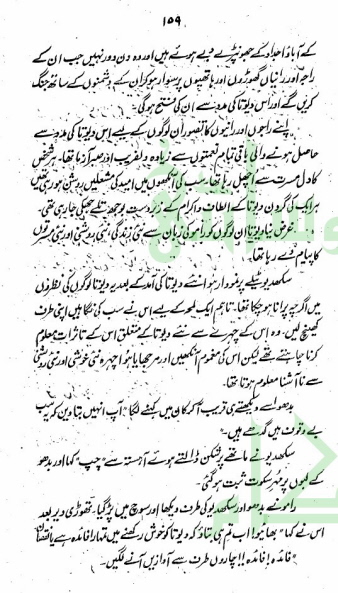 ۱۵۹
کے آباؤ اجداد کے جھونپڑے جیسے ہوئے ہیں اور وہ دن دور نہیں جب ان کے
راجہ اور رانیاں گھوڑوں اور ہاتھیوں پر سوار ہو کر ان کے دشمنوں کے ساتھ جنگ
کریں گے اور اس دیوتا کی مدد سے ان کی فتح ہوگی۔
اپنے راجوں اور رانیوں کا تصور ان لوگوں کے لیے اس دیوتا کی مدد سے
حاصل ہونے والی باقی تمام نعمتوں سے زیادہ دلفریب اور صبر آزما تھا۔ ہر شخص
کا دل مسرت سے اچھل رہا تھا۔ سب کی آنکھوں میں امید کی مشعلیں روشن ہو رہی تھیں
ہر ایک کی گردن دیوتا کے الطاف و اکرام کے زبردست بوجھ تلے جھکی جا رہی تھی۔
غرض نیا دیوتا ان لوگوں کو رامو کی زبان سے نئی زندگی، نئی روشنی اور نئی مسرتوں
کا پیام دے رہا تھا۔
سکھدیو ٹیلے پر نمودار ہوا نئے دیوتا کی آمد کے بعد یہ دیوتا لوگوں کی نظروں
میں اگرچہ پرانا ہو چکا تھا۔ تاہم ایک لمحہ کے لیے اس نے سب کی نگاہیں اپنی طرف
کھینچ لیں۔ وہ اس کے چہرے سے نئے دیوتا کے متعلق اس کے تاثرات معلوم
کرنا چاہتے تھے لیکن اس کی مغموم آنکھیں اور مرجھایا ہوا چہرہ نئی خوشی اور نئی روشنی
سے نا آشنا معلوم ہوتا تھا۔
بدھو اسے دیکھتے ہی قریب آ کر کان میں کہنے لگا "آپ انہیں بتا دیں کہ یہ سب
بے وقوف ہیں گدھے ہیں۔"
سکھدیو نے ماتھے پر شکن ڈالتے ہوئے آہستہ سے "چپ" کہا اور بدھو
کے لبوں پر مہر سکوت ثبت ہو گئی۔
رامو نے بدھو اور سکھدیو کی طرف دیکھا اور سوچ میں پڑ گیا۔ تھوڑی دیر بعد
اس نے کہا "بھائیو! اب تم ہی بتاؤ کہ دیوتا کو خوش رکھنے میں تمہارا فائدہ ہے یا نقصان؟"
"فائدہ! فائدہ!!" چاروں طرف سے آوازیں آنے لگیں۔